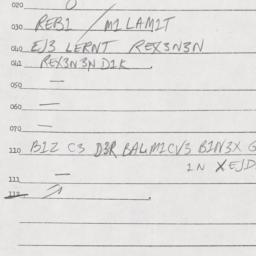 020
030 REBI / MI LAMIT
040 EJ3 LERNT REX3N3N
041 REX3N3NDIK
050
060
070
110 BIZ C3 D3R BALMICV3 BIN3X G
IN XEJD
111
112